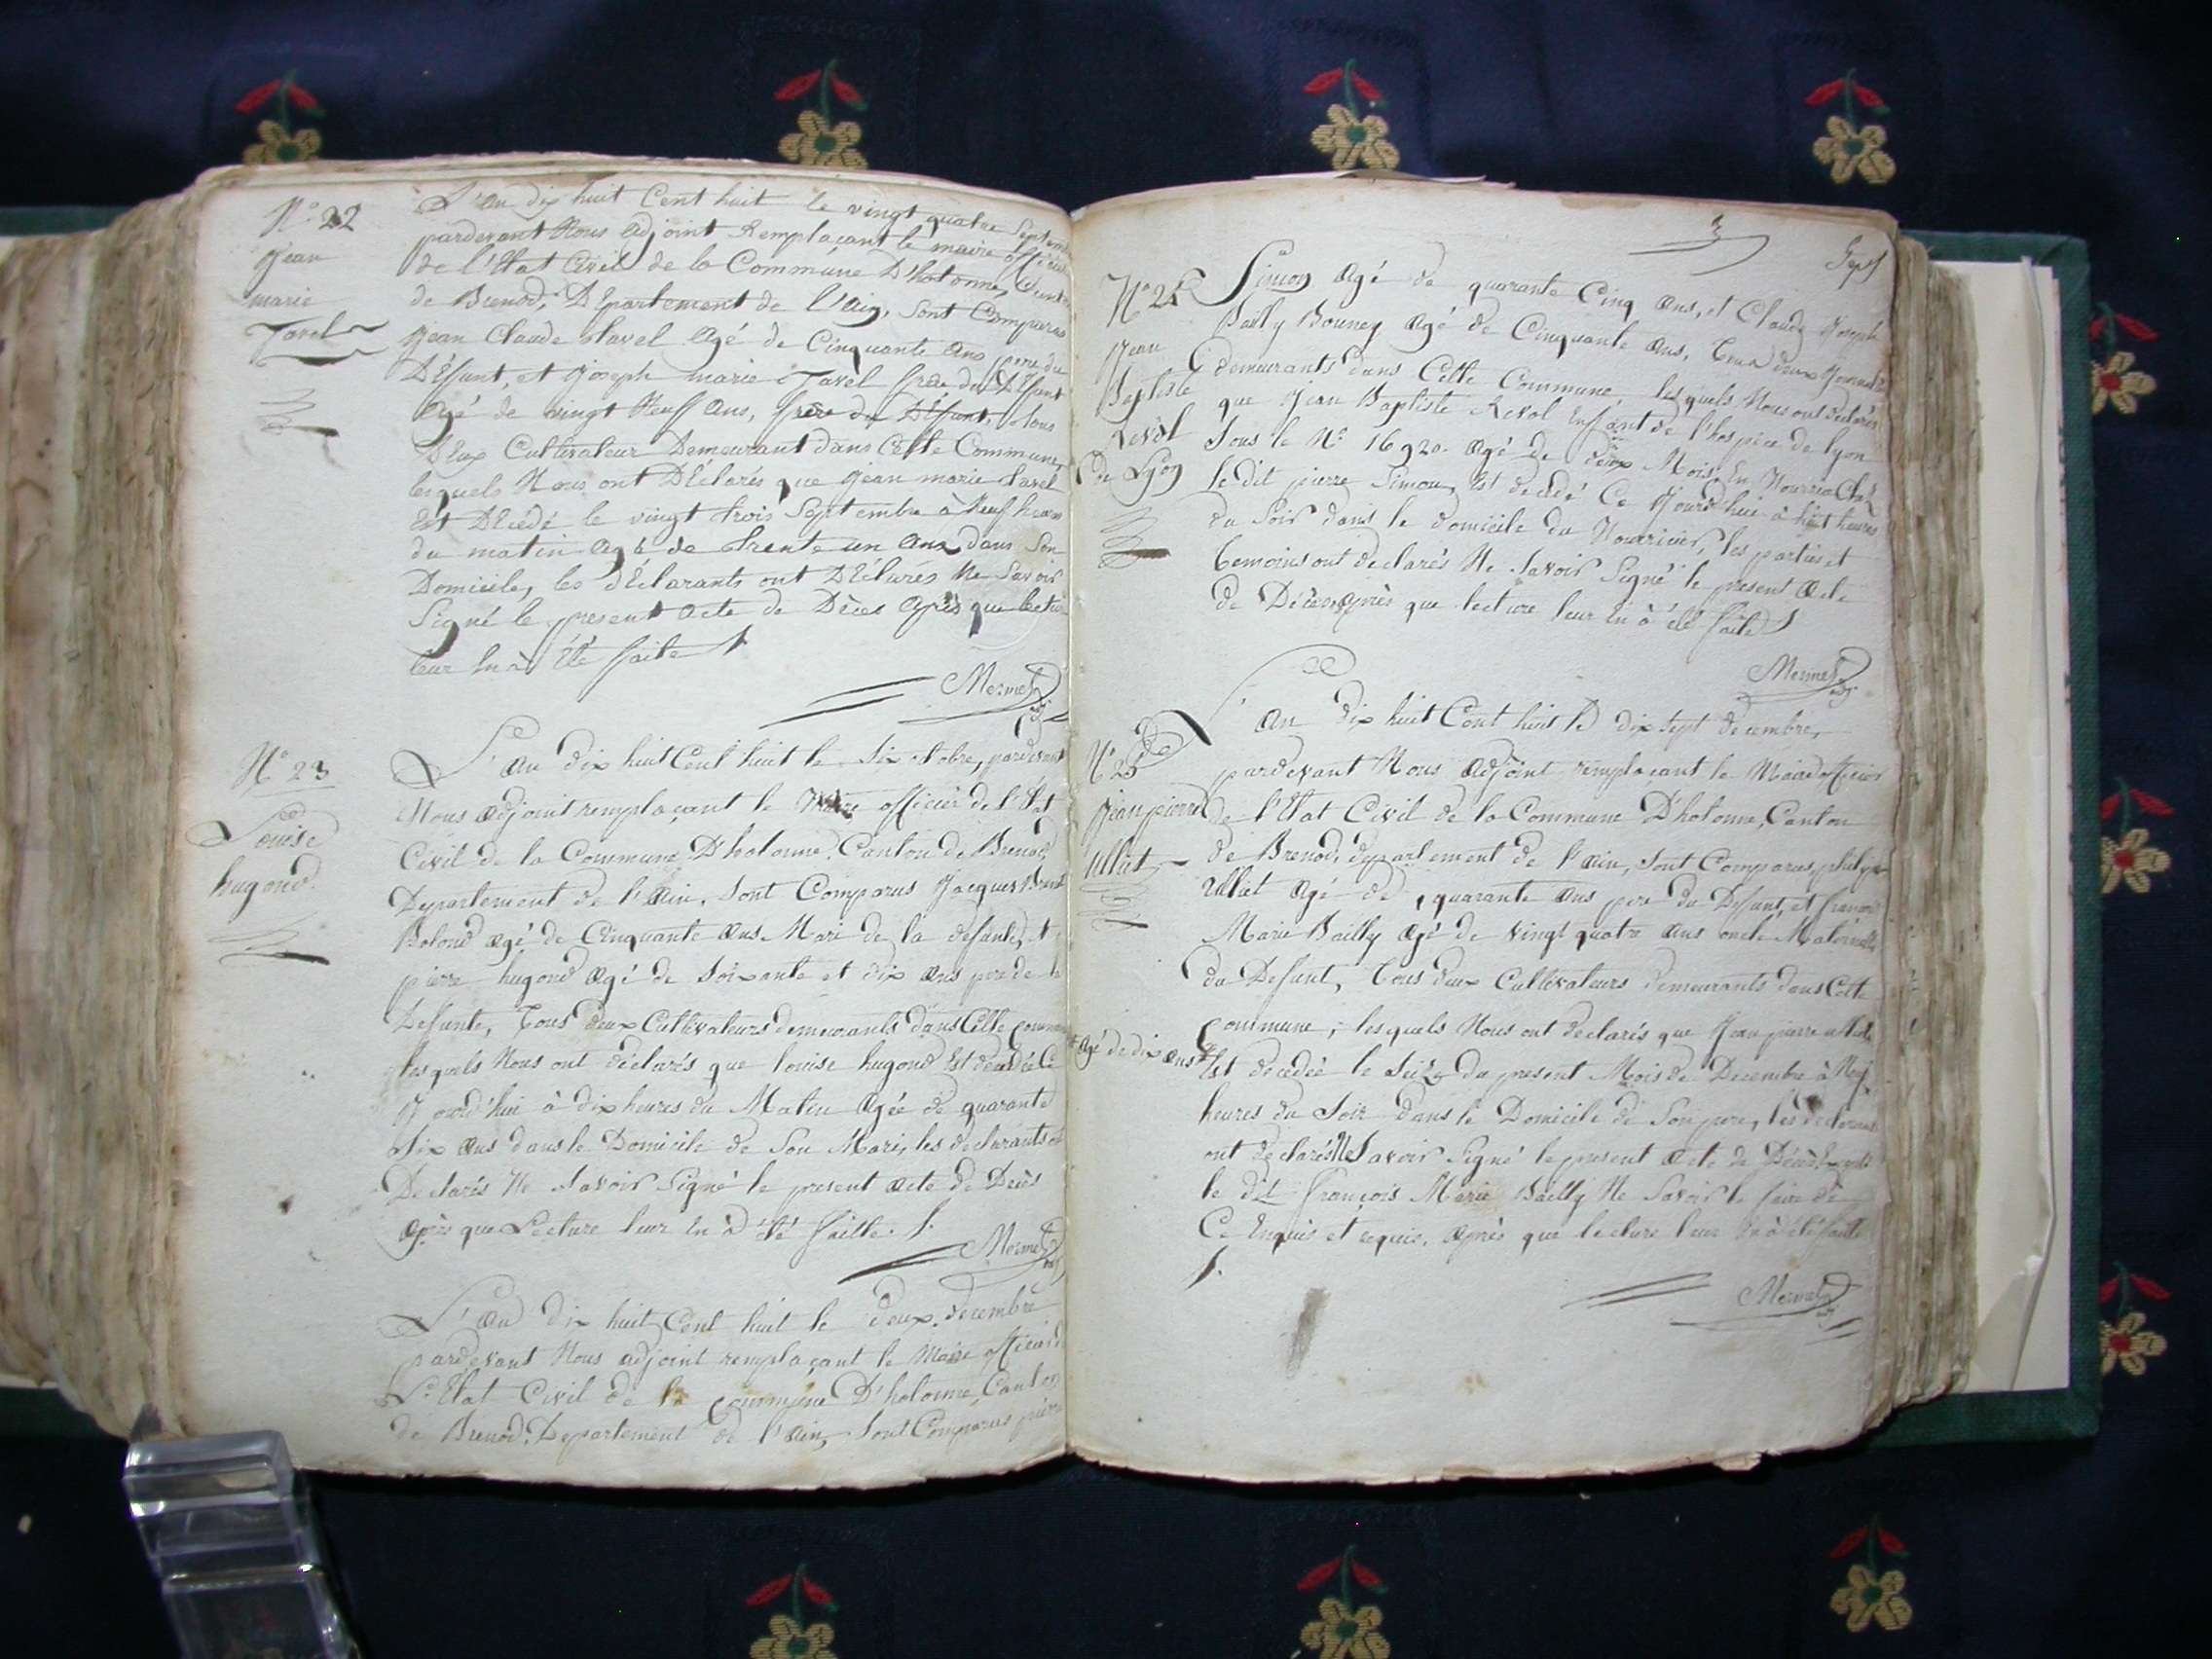 N° 22
Jean
marie
Tavel
L'an dix huit Cent huit le vingt quatre Septem
pardevant Nous adjoint Remplaçant le maire officier
de l'Etat Civil de la Commune D'hotonne, Canton
de Brenod, Département de l'Ain, sont Comparus
Jean Claude tavel Agé de Cinquante ans pere du
Défunt, et Joseph marie Tavel frere du Défunt
Agé de vingt Neuf ans, frere du Défunt, tous
Deux Cultivateur Demeurant dans Cette Commune,
lesquels Nous ont Déclarés que Jean marie tavel
Est Décédé le vingt trois Septembre à Neuf heures
du matin Agé de trente un ans dans Son
Domicile, les déclarants ont Déclarés Ne Savoir
Signé le present acte de Dèces Après que lecture
leur En à Été faite
Mermet
N° 23
Louise
hugond
L'an dix huit Cent huit le Six octobre, pardevant
Nous adjoint remplaçant le Maire officier de l'Etat
Civil de la Commune D'hotonne, Canton de Brenod,
Departement de l'Ain, sont Comparus Jacques
Bolond agé de Cinquante ans Mari de la defunte, et
pierre hugond agé de Soixante et dix ans pere de la
Defunte, Tous deux Cultivateurs demeurants dans Cette commune
lesquels Nous ont déclarés que louise hugond Est décédée Ce
Jourd'hui à dix heures du Matin Agée de quarante
Six ans dans le Domicile de Son Mari, les declarants ont
Declarés Ne Savoir Signé le present acte de Decès
Après que Lecture leur En à été faitte.
Mermet
L'an dix huit Cent huit le deux decembre
pardevant Nous adjoint remplaçant le Maire officier de
L'Etat Civil de la commune D'hotonne, Canton
de Brenod, Departement de l'Ain, Sont Comparus pierre
N° 24
Jean
Baptiste
Revol
de Lyon
Simon Agé de quarante Cinq ans, et Claude Joseph
Bailly Bouney Agé de Cinquante ans, Tous deux
demeurants dans Cette Commune, lesquels Nous ont declarés
que Jean Baptiste Revol Enfant de l'hospice de lyon
Sous le N° 16920. Agé de deux Mois En Nourrice Chez
le dit pierre Simon, Est decedé Ce Jourd'hui à huit heures
du Soir dans le domicile du Nourricier, les parties et
temoins ont declarés Ne Savoir Signé le present acte
de Décès après que lecture leur En à été faite
Mermet
N° 25
Jean pierre
ulliet
L'an dix huit Cent huit le dix Sept decembre,
pardevant Nous Adjoint remplaçant le Maire officier
de l'Etat Civil de la Commune D'hotonne, Canton
de Brenod, departement de l'Ain, Sont Comparus, philipe
Ulliet Agé de quarante ans pere du Defunt, et francois
Marie Bailly Agé de vingt quatre ans oncle Maternelle
du Defunt, Tous deux Cultivateurs demeurants dans Cette
commune, lesquels Nous ont declarés que Jean pierre ulliet
agé de dix ans
Est decedée le Seize du present Mois de Decembre à Neuf
heures du Soir dans le Domicile de Son pere, les declarants
ont declarés Ne Savoir Signé le present acte de Décès
le dit françois Marie Bailly Ne Savoir le faire de
Ce Enquis et requis, Après que lecture leur En à été faitte
Mermet